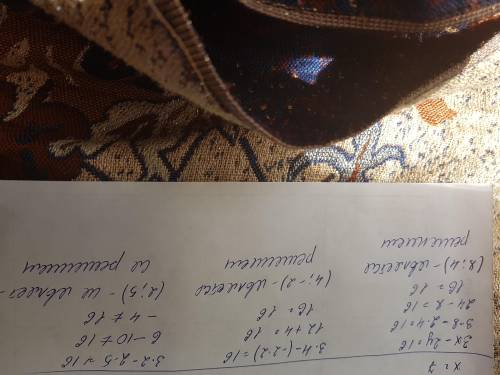 3x-2y=16
3·8-2·4=16
24-8=16
16=16
(8;4) - является
решением
3·4-(-2·2)=16
12+4=16
16=16
(4;-2) - является
решением
3·2-2·5=16
6-10≠16
-4≠16
(2;5) - не являет-
ся решением